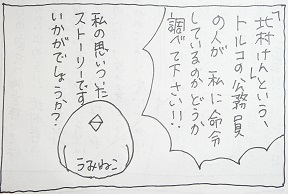 「北村けんという、
トルコの公務員
の人が私に命令
しているのかどうか
調べて下さい!!
私の思いついた
ストーリーです
いかがでしょうか?
うみねこ